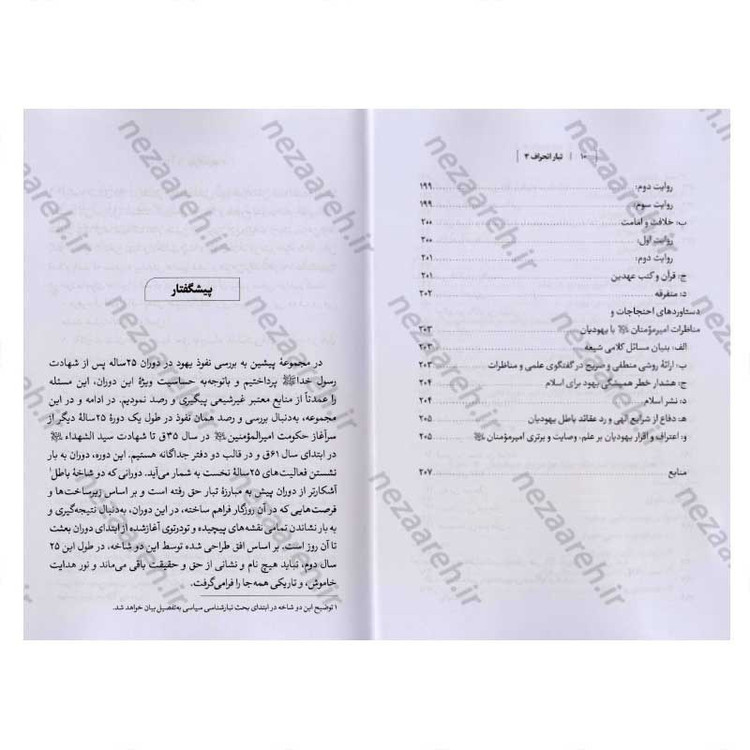 ۱۰ | تبار انحراف ۳ |
روایت دوم: ۱۹۹
روایت سوم: ۱۹۹
ب: خلافت و امامت ۲۰۰
روایت اول: ۲۰۰
روایت دوم: ۲۰۱
ج: قرآن و کتب عهدین ۲۰۱
د: متفرقه ۲۰۲
دستاوردهای احتجاجات و
مناظرات امیرمؤمنان ﷷ با یهودیان ۲۰۳
الف: بنیان مسائل کلامی شیعه ۲۰۳
ب: ارائهٔ روشی منطقی و صریح در گفتگوی علمی و مناظرات ۲۰۳
ج: هشدار خطر همیشگی یهود برای اسلام ۲۰۴
د: نشر اسلام ۲۰۴
ه: دفاع از شرایع الهی و رد عقائد باطل یهودیان ۲۰۵
و: اعتراف و اقرار یهودیان بر علم، وصایت و برتری امیرمؤمنان ۲۰۵
منابع ۲۰۷
پیشگفتار
در مجموعهٔ پیشین به بررسی نفوذ یهود در دوران ۲۵ساله پس از شهادت
رسول خداﷺ پرداختیم و باتوجه‌به حساسیت ویژهٔ این دوران، این مسئله
را عمدتاً از منابع معتبر غیرشیعی پیگیری و رصد نمودیم. در ادامه و در این
مجموعه، به‌دنبال بررسی و رصد همان نفوذ در طول یک دورهٔ ۲۵سالهٔ دیگر از
سرآغاز حکومت امیرالمؤمنین در سال ۳۵ق تا شهادت سید الشهداء
در ابتدای سال ۶۱ق و در قالب دو دفتر جداگانه هستیم. این دوره، دوران به بار
نشستن فعالیت‌های ۲۵سالهٔ نخست به شمار می‌آید. دورانی که دو شاخهٔ باطل۱
آشکارتر از دوران پیش به مبارزهٔ تبار حق رفته است و بر اساس زیرساخت‌ها و
فرصت‌هایی که در آن روزگار فراهم ساخته، در این دوران، به‌دنبال نتیجه‌گیری و
به بار نشاندن تمامی نقشه‌های پیچیده و تودرتوی آغازشده از ابتدای دوران بعثت
تا آن روز است. بر اساس افق طراحی شده توسط این دو شاخه، در طول این ۲۵
سال دوم، نباید هیچ نام و نشانی از حق و حقیقت باقی می‌ماند و نور هدایت
خاموش، و تاریکی همه‌جا را فرامی‌گرفت.
۱ توضیح این دو شاخه در ابتدای بحث تبارشناسی سیاسی به‌تفصیل بیان خواهد شد.
nezaareh.ir